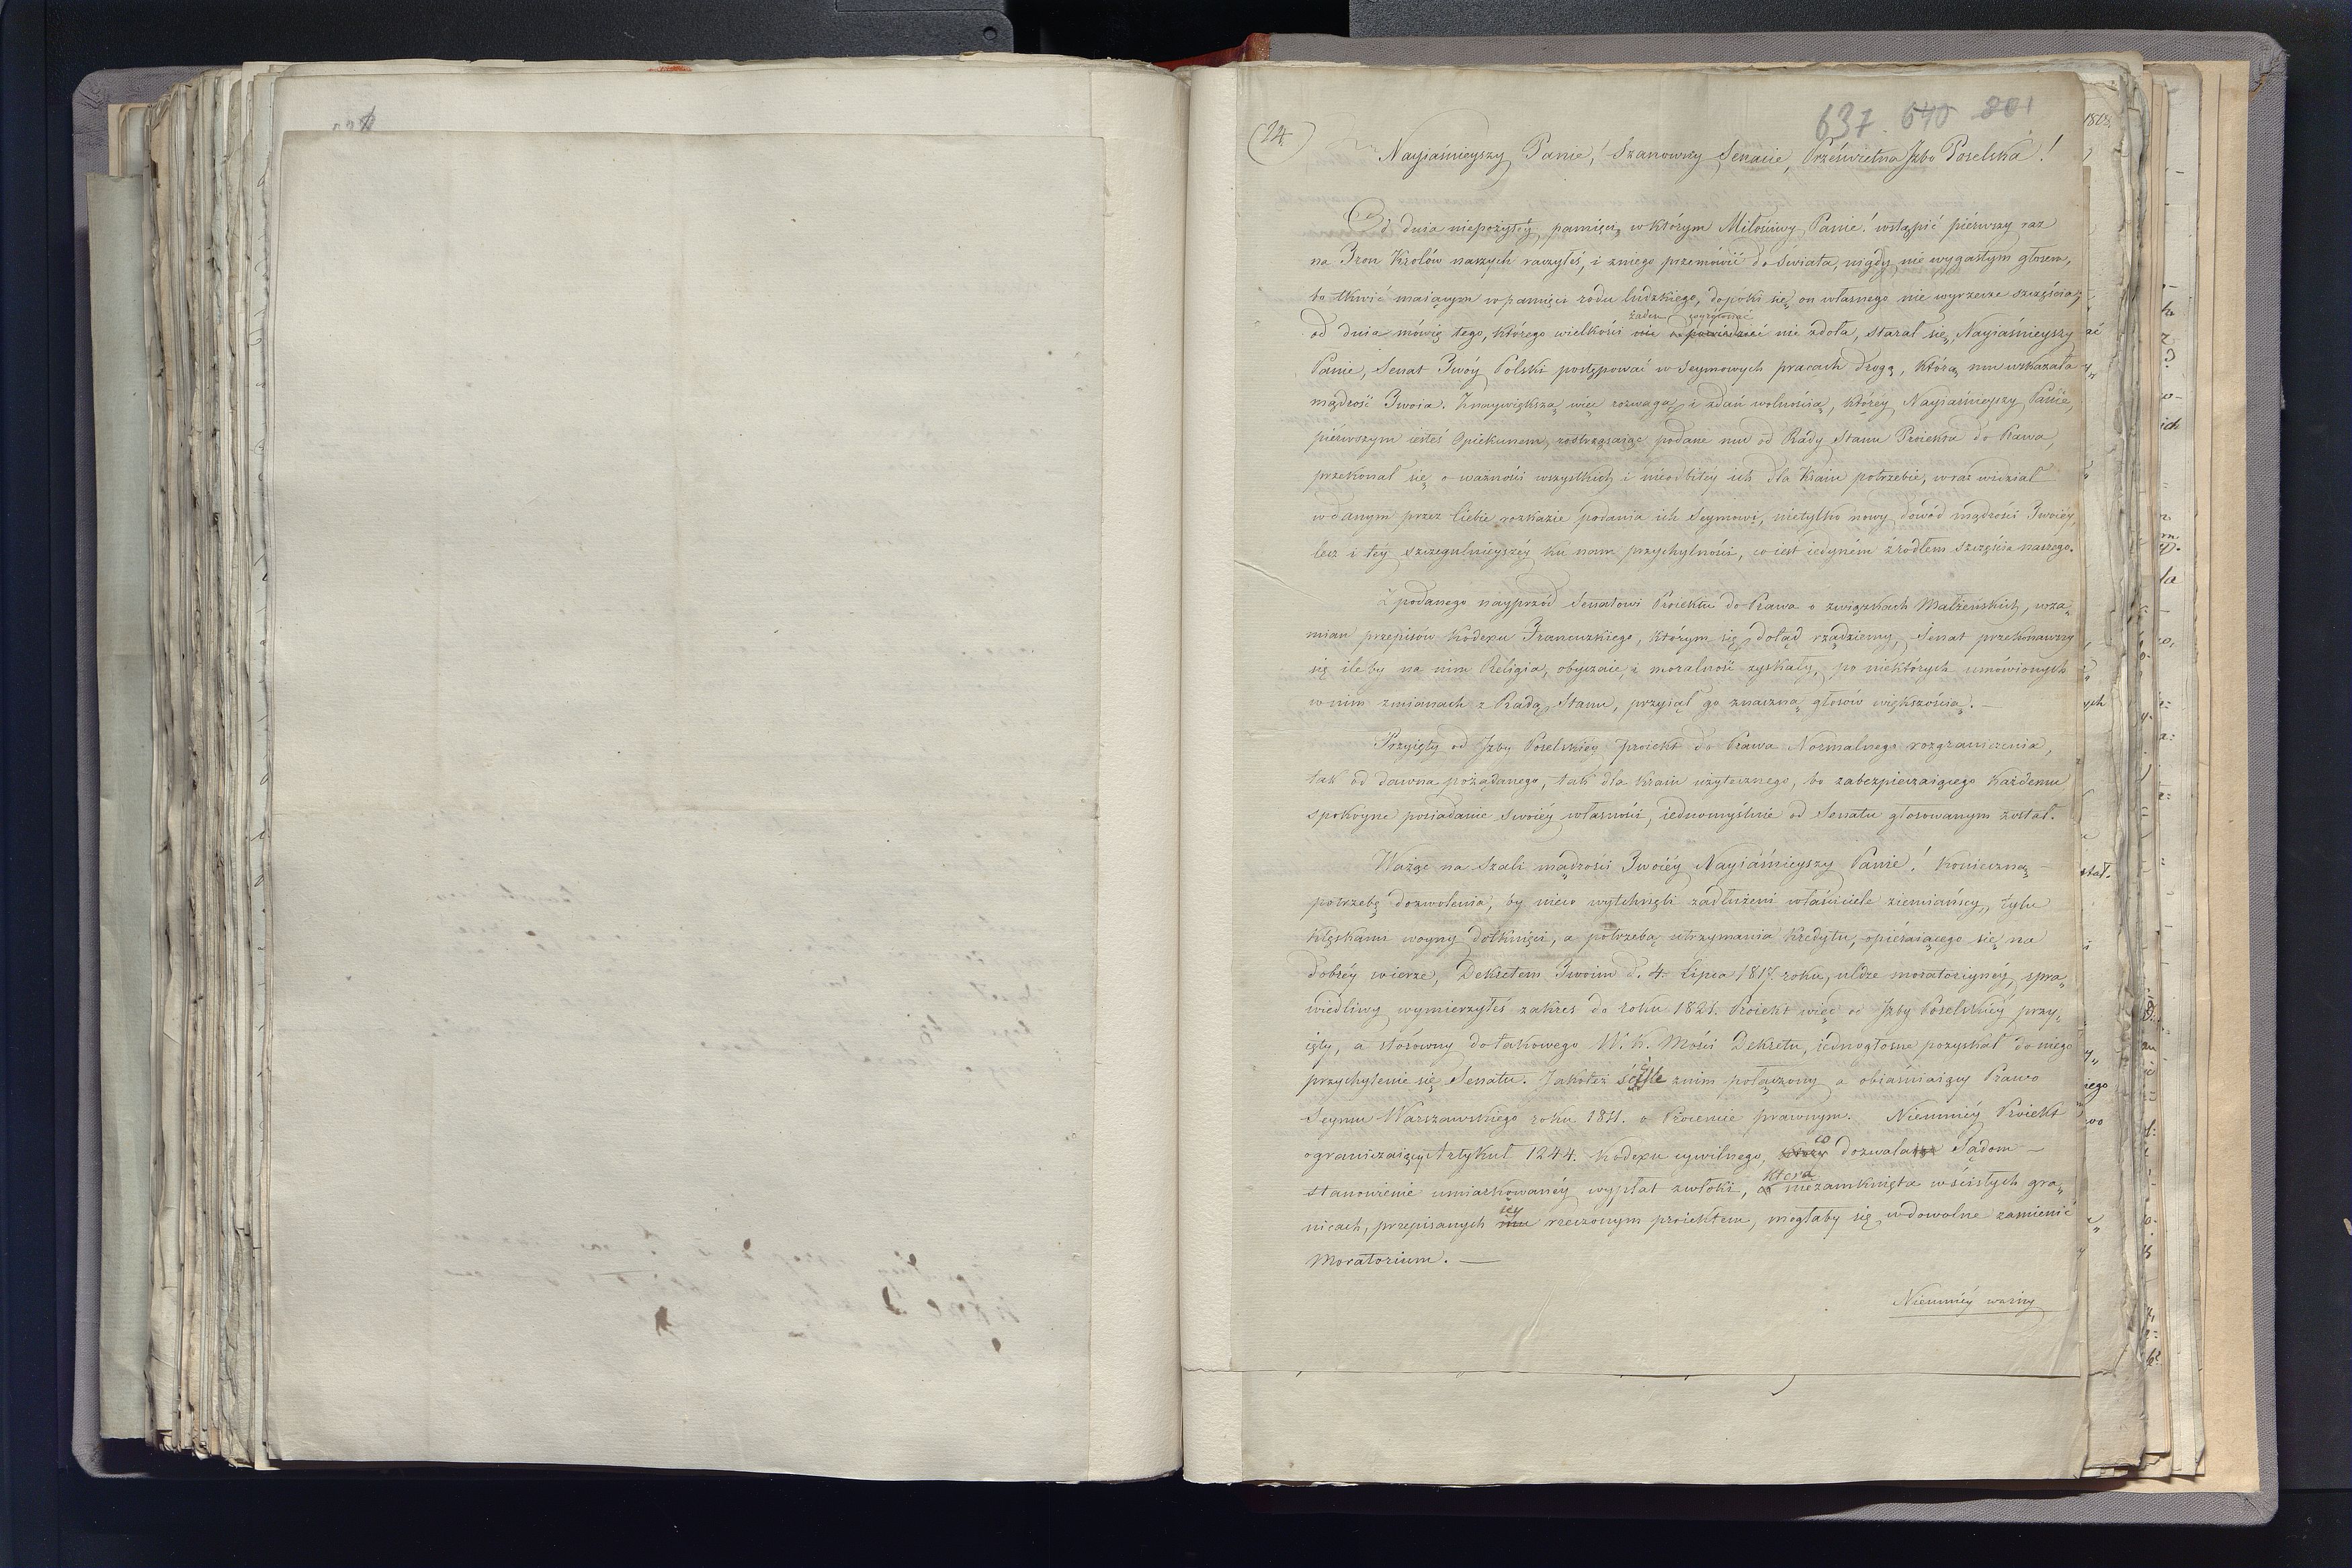 637. 640 801
(24.)
Nayiaśnieyszy Panie! Szanowny Senacie, Prześwietna Jzbo Poselska!
Od dnia niepożyłéy pamięci, w którym Miłościwy Panie! wstąpić piérwszy raz
na Tron Królów naszych raczyłeś, i zniego przemówić do świata, nigdy nie wygasłym głosem,
bo tkwić maiącym w pamięci rodu ludzkiego, dopóki się on własnego nie wyrzecze szczęścia;
żaden wyrównać
od dnia mówię tego, którego wielkości nie zdoła, starał się, Nayiaśnieyszy
Panie, Senat Twóy Polski postępować w Seymowych pracach drogą, którą mu wskazała
mądrość Twoia. Znaywiększą więc rozwagą i zdań wolnością, któréy Nayiaśnieyszy Panie,
piérwszym iesteś Opiekunem, rostrząsaiąc podane mu od Rady Stanu Proiekta do Prawa,
przekonał się o ważności wszystkich i nieodbitéy ich dla Kraiu potrzebie, wraz widział
w danym przez Ciebie rozkazie podania ich Seymowi, nietylko nowy dowód mądrości Twoiéy,
lecz i téy szczegulnieyszéy ku nam przychylności, co iest iedyném źrodłem szczęścia naszego.
Z podanego nayprzód Senatowi Proiektu do Prawa o związkach Małżeńskich, wza„
mian przepisów Kodexu Francuzkiego, którym się dotąd rządziemy, Senat przekonawszy
się ileby na nim Religia, obyczaie, i moralność zyskały, po niektórych umówionych
w nim zmianach z Radą Stanu, przyiął go znaczną głosów większością. —
Przyięty od Jzby Poselskiéy proiekt do Prawa Normalnego rozgraniczenia,
tak od dawna pożądanego, tak dla Kraiu użytecznego, bo zabezpieczaiącego Każdemu
spokoyne posiadanie Swoiéy własności, iednomyślnie od Senatu głosowanym został.
Ważąc na Szali mądrości Twoiéy Nayiaśnieyszy Panie! Konieczną —
potrzebę dozwolenia, by nieco wytchnęli zadłużeni właściciele ziemiańscy, tylu
klęskami woyny dotknięci, a potrzebą utrzymania Kredytu, opiéraiącego się na
dobréy wierze, Dekretem Twoim d. 4. Lipca 1817. roku, uldze moratoryinéy, spra„
wiedliwy wymierzyłeś zakres do roku 1821. Proiekt więc od Jzby Poselskiéy przy„
ięty, a stósowny do takowego W. K. Mości Dekretu, iednogłosne pozyskał do niego
przychylenie się Senatu. Jakoteż ściśle znim połączony a obiaśniaiący Prawo
Seymu Warszawskiego roku 1811. o Procencie prawnym. Niemniéy Proiekt
co
ograniczaiący Artykuł 1244. Kodexu cywilnego, który dozwala Sądom —
która
stanowienie umiarkowanéy wypłat zwłoki, a niezamknięta w ścisłych gra„
iéy
nicach, przepisanych mu rzeczonym proiektem, mogłaby się w dowolne zamienić
Moratorium. —
Niemniéy ważny